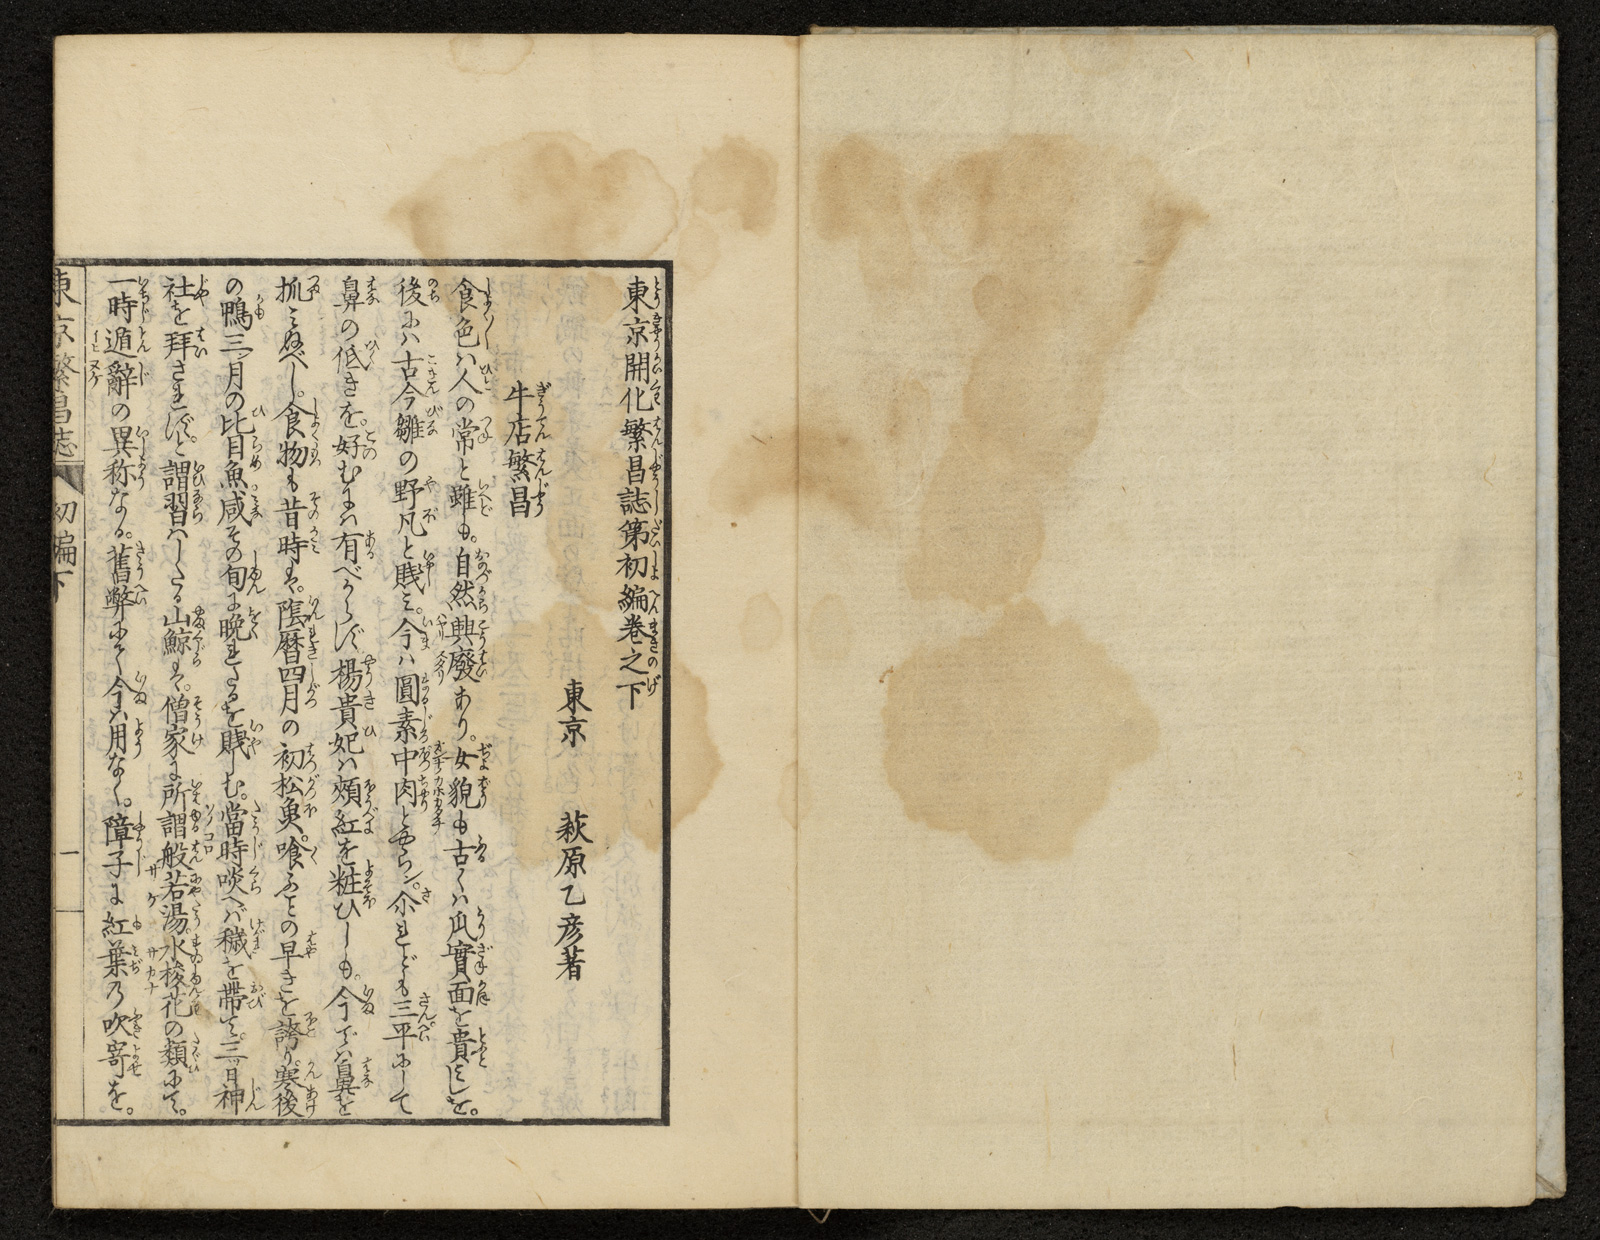 東京開化繁昌誌第初編巻之下
東京 萩原乙彦著
牛店繁昌
食色ハ人の常と雖も。自然興廢あり。女貌も古くハ瓜實面を貴としを。
後にハ古今雛の野凡と賎ミ。今ハ圓素中肉とやらン。尒れども三平にして
鼻の低きを。好むにハ有べからず楊貴妃ハ頬紅を粧ひしも。今でハ鼻を
抓ミぬべし。食物も昔時は。陰暦四月の初松魚。喰ふことの早きを誇り。寒後
の鴨三月の比目魚咸その旬に晩れたるを賎しむ。當時啖へバ穢を帯て。三日神
社を拝されずと。謂習ハしたる山鯨は。僧家に所謂般若湯。水梭花の類にて。
一時遁辭の異称なる。舊弊にて今ハ用なく。障子に紅葉乃吹寄を。
東京繁昌誌 初編下 一